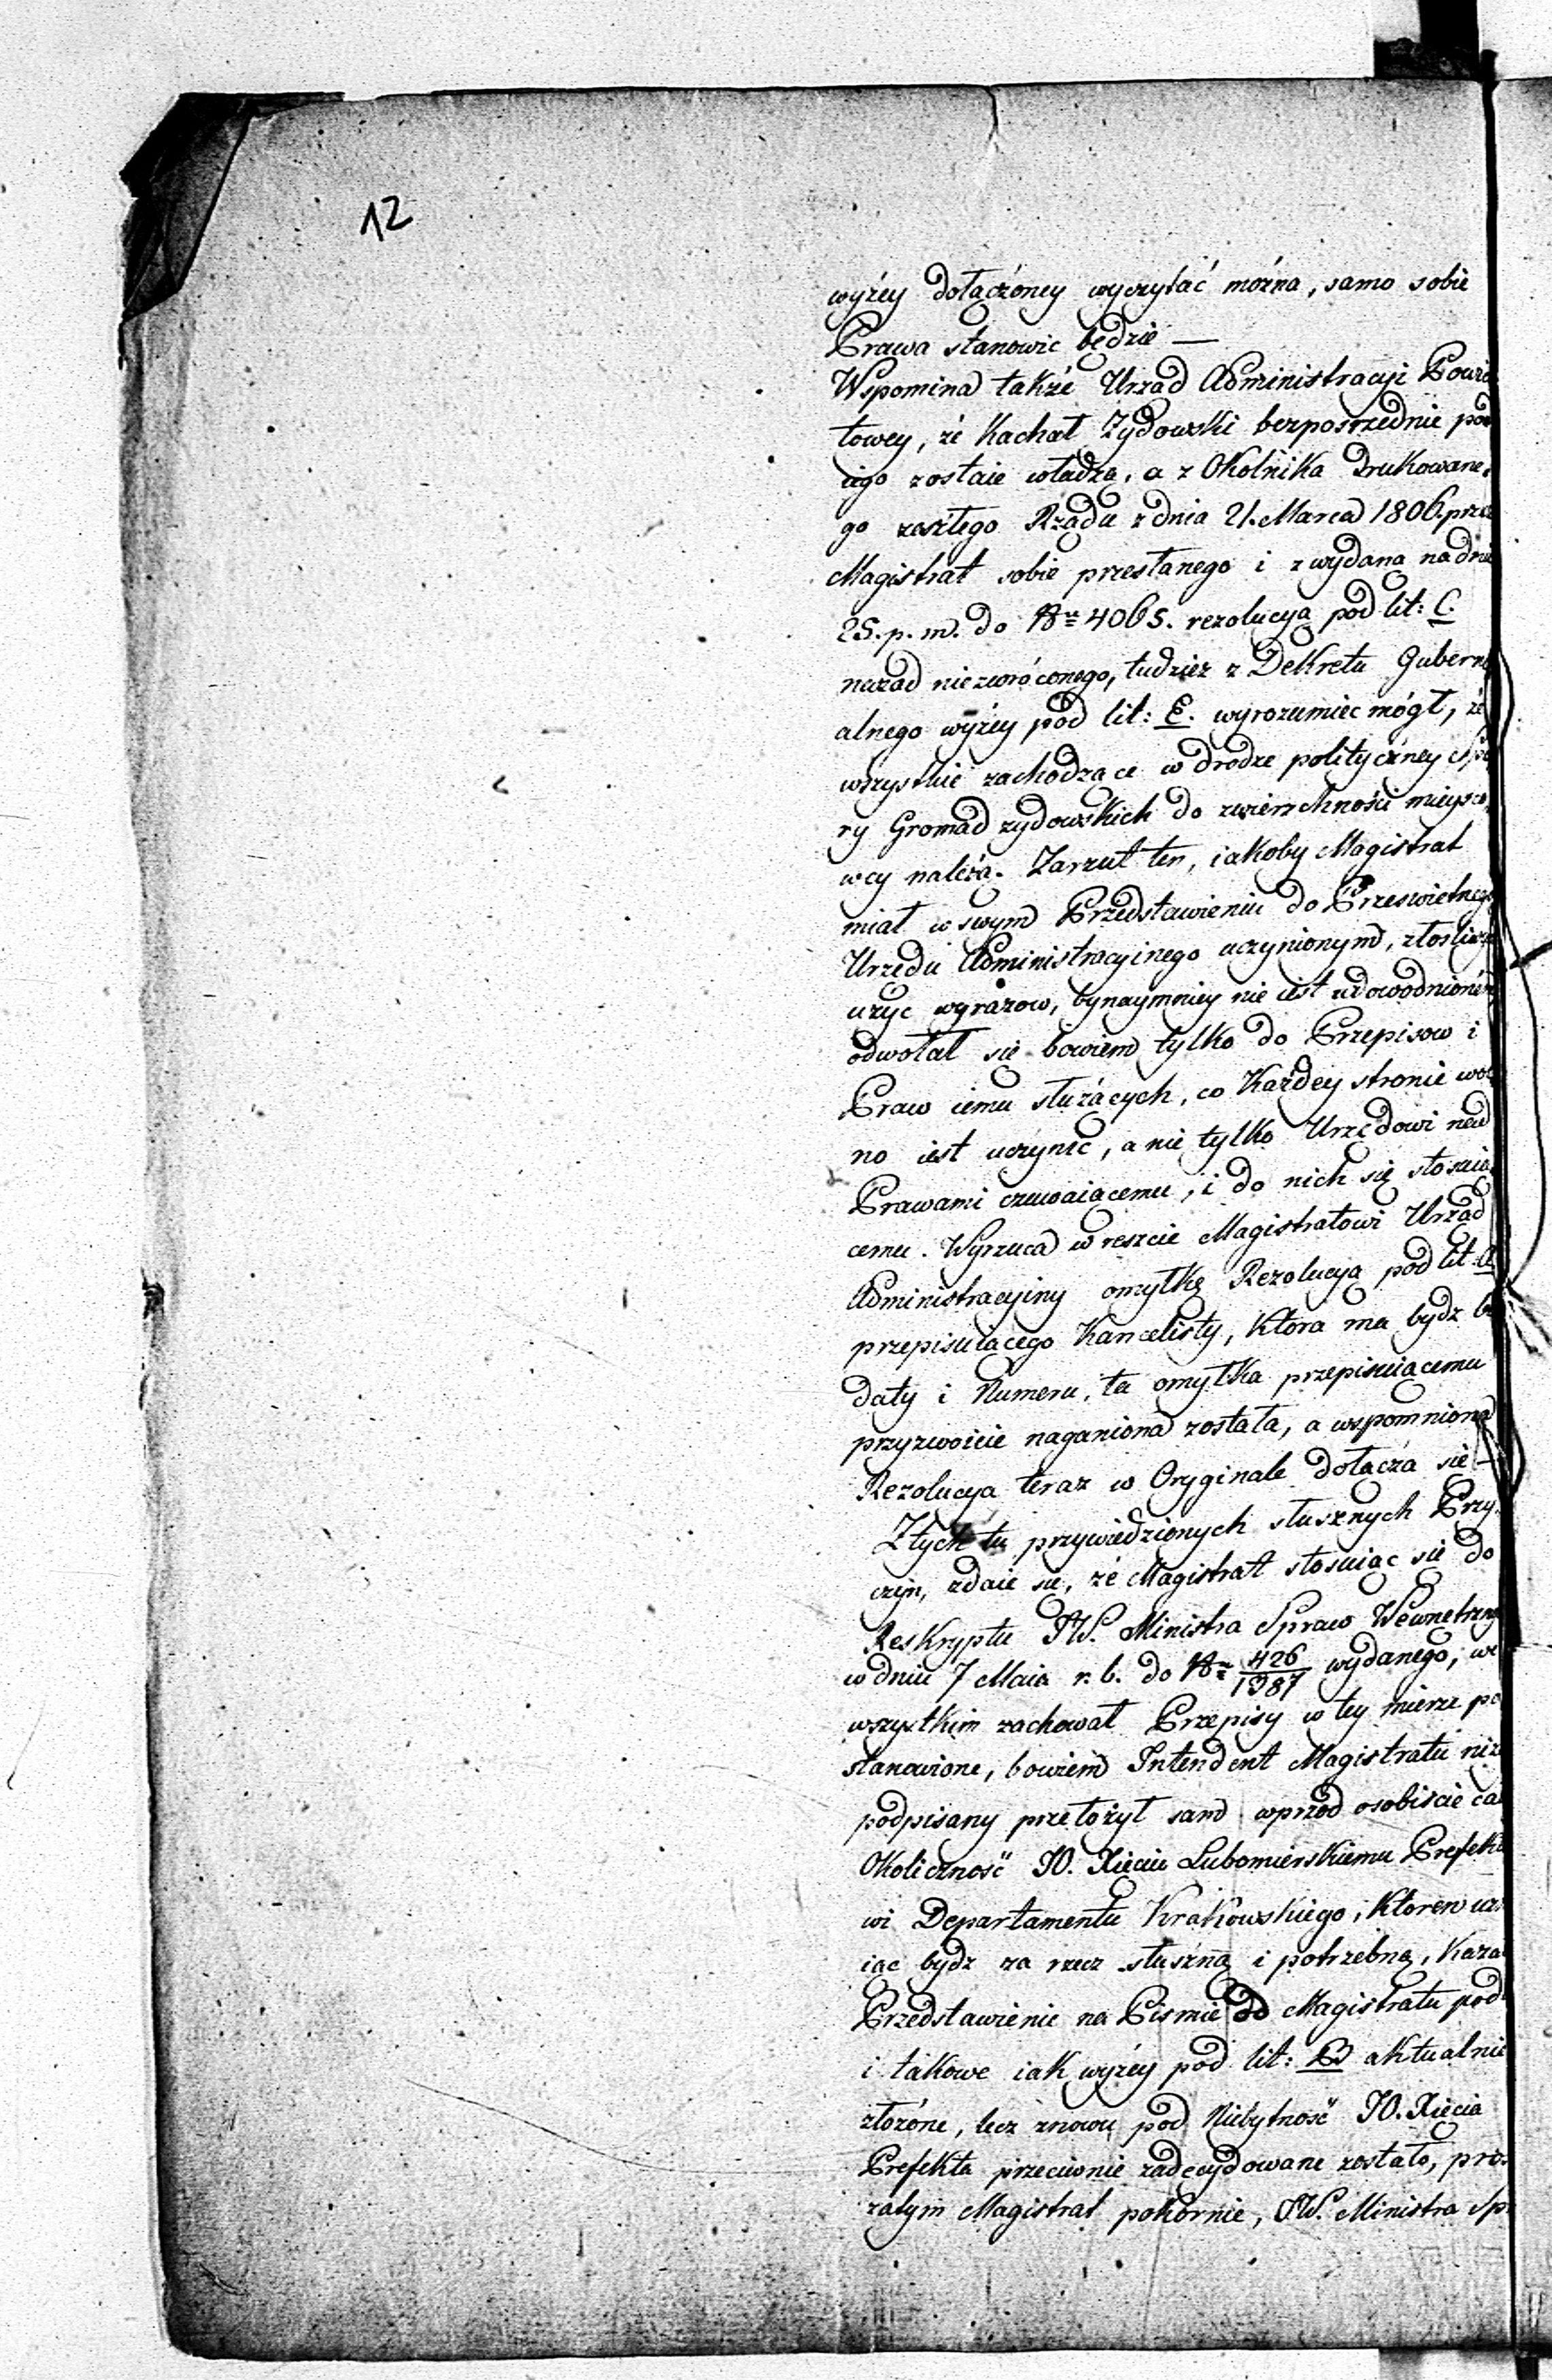 12
wyżey dołączoney wyczytać można, samo sobie
Prawa stanowic będzie —
Wspomina także Urząd Administracyi Powia
towey, że Kachał Zydowski bezposrzednie pod
iego zostaie władzą, a z Okolnika Drukowane-
go zeszłego Rządu z dnia 21. Marca 1806. przez
Magistrat sobie przesłanego i z wydaną na dniu
25. p. m. do Nr 4065. rezolucyą pod lit: C.
nazad niezwróconego, tudziez z Dekretu Guberni
alnego wyżey pod lit: E. wyrozumiec mógł, że
wszystkie zachodzące w drodze polityczney Spo
ry Gromad zydowskich do zwierzchności mieysco
wey należą. Zarzut ten, iakoby Magistrat
miał w swym Przedstawieniu do Przeswietnego
Urzędu Administracyinego uczynionym, złosliwych
uzyc wyrazow, bynaymniey nie iest udowodnionem
odwołał się bowiem tylko do Przepisow i
Praw iemu służących, co Każdey stronie wol
no iest uczynić, a nie tylko Urzędowi nad
Prawami czuwaiącemu, i do nich się stosuią
cemu. Wyrzuca w reszcie Magistratowi Urząd
Administracyiny omyłkę Rezolucyą pod lit. A
przepisuiącego Kancelisty, Ktora ma bydz bez
daty i Numeru, ta omyłka przepisuiącemu
przyzwoicie naganiona została, a wspomniona
Rezolucya teraz w Oryginale dołącza się —
Z tych tu przywiedzionych słusznych Przy-
czyn, zdaie się, że Magistrat stosuiąc się do
Reskryptu JW. Ministra Spraw Wewnętrzny
w dniu 7 Maia r. b. do Nr 426/1387 wydanego, we
wszystkim zachował Przepisy w tey mierze po
stanowione, bowiem Intendent Magistratu niże
podpisany przełożył sam wprzod osobiscie cał
Okoliczność JO. Xięciu Lubomierskiemu Prefekto
wi Departamentu Krakowskiego, Ktoren uzn
iąc bydz za rzecz słuszną i potrzebną, Kazał
Przedstawienie na Pismie do Magistratu pod
i takowe iak wyżey pod lit: D aktualnie
złożone, lecz znowu pod Niebytność JO. Xięcia
Prefekta przeciwnie zadecydowane zostało, pros
zatym Magistrat pokornie, JW. Ministra Sp